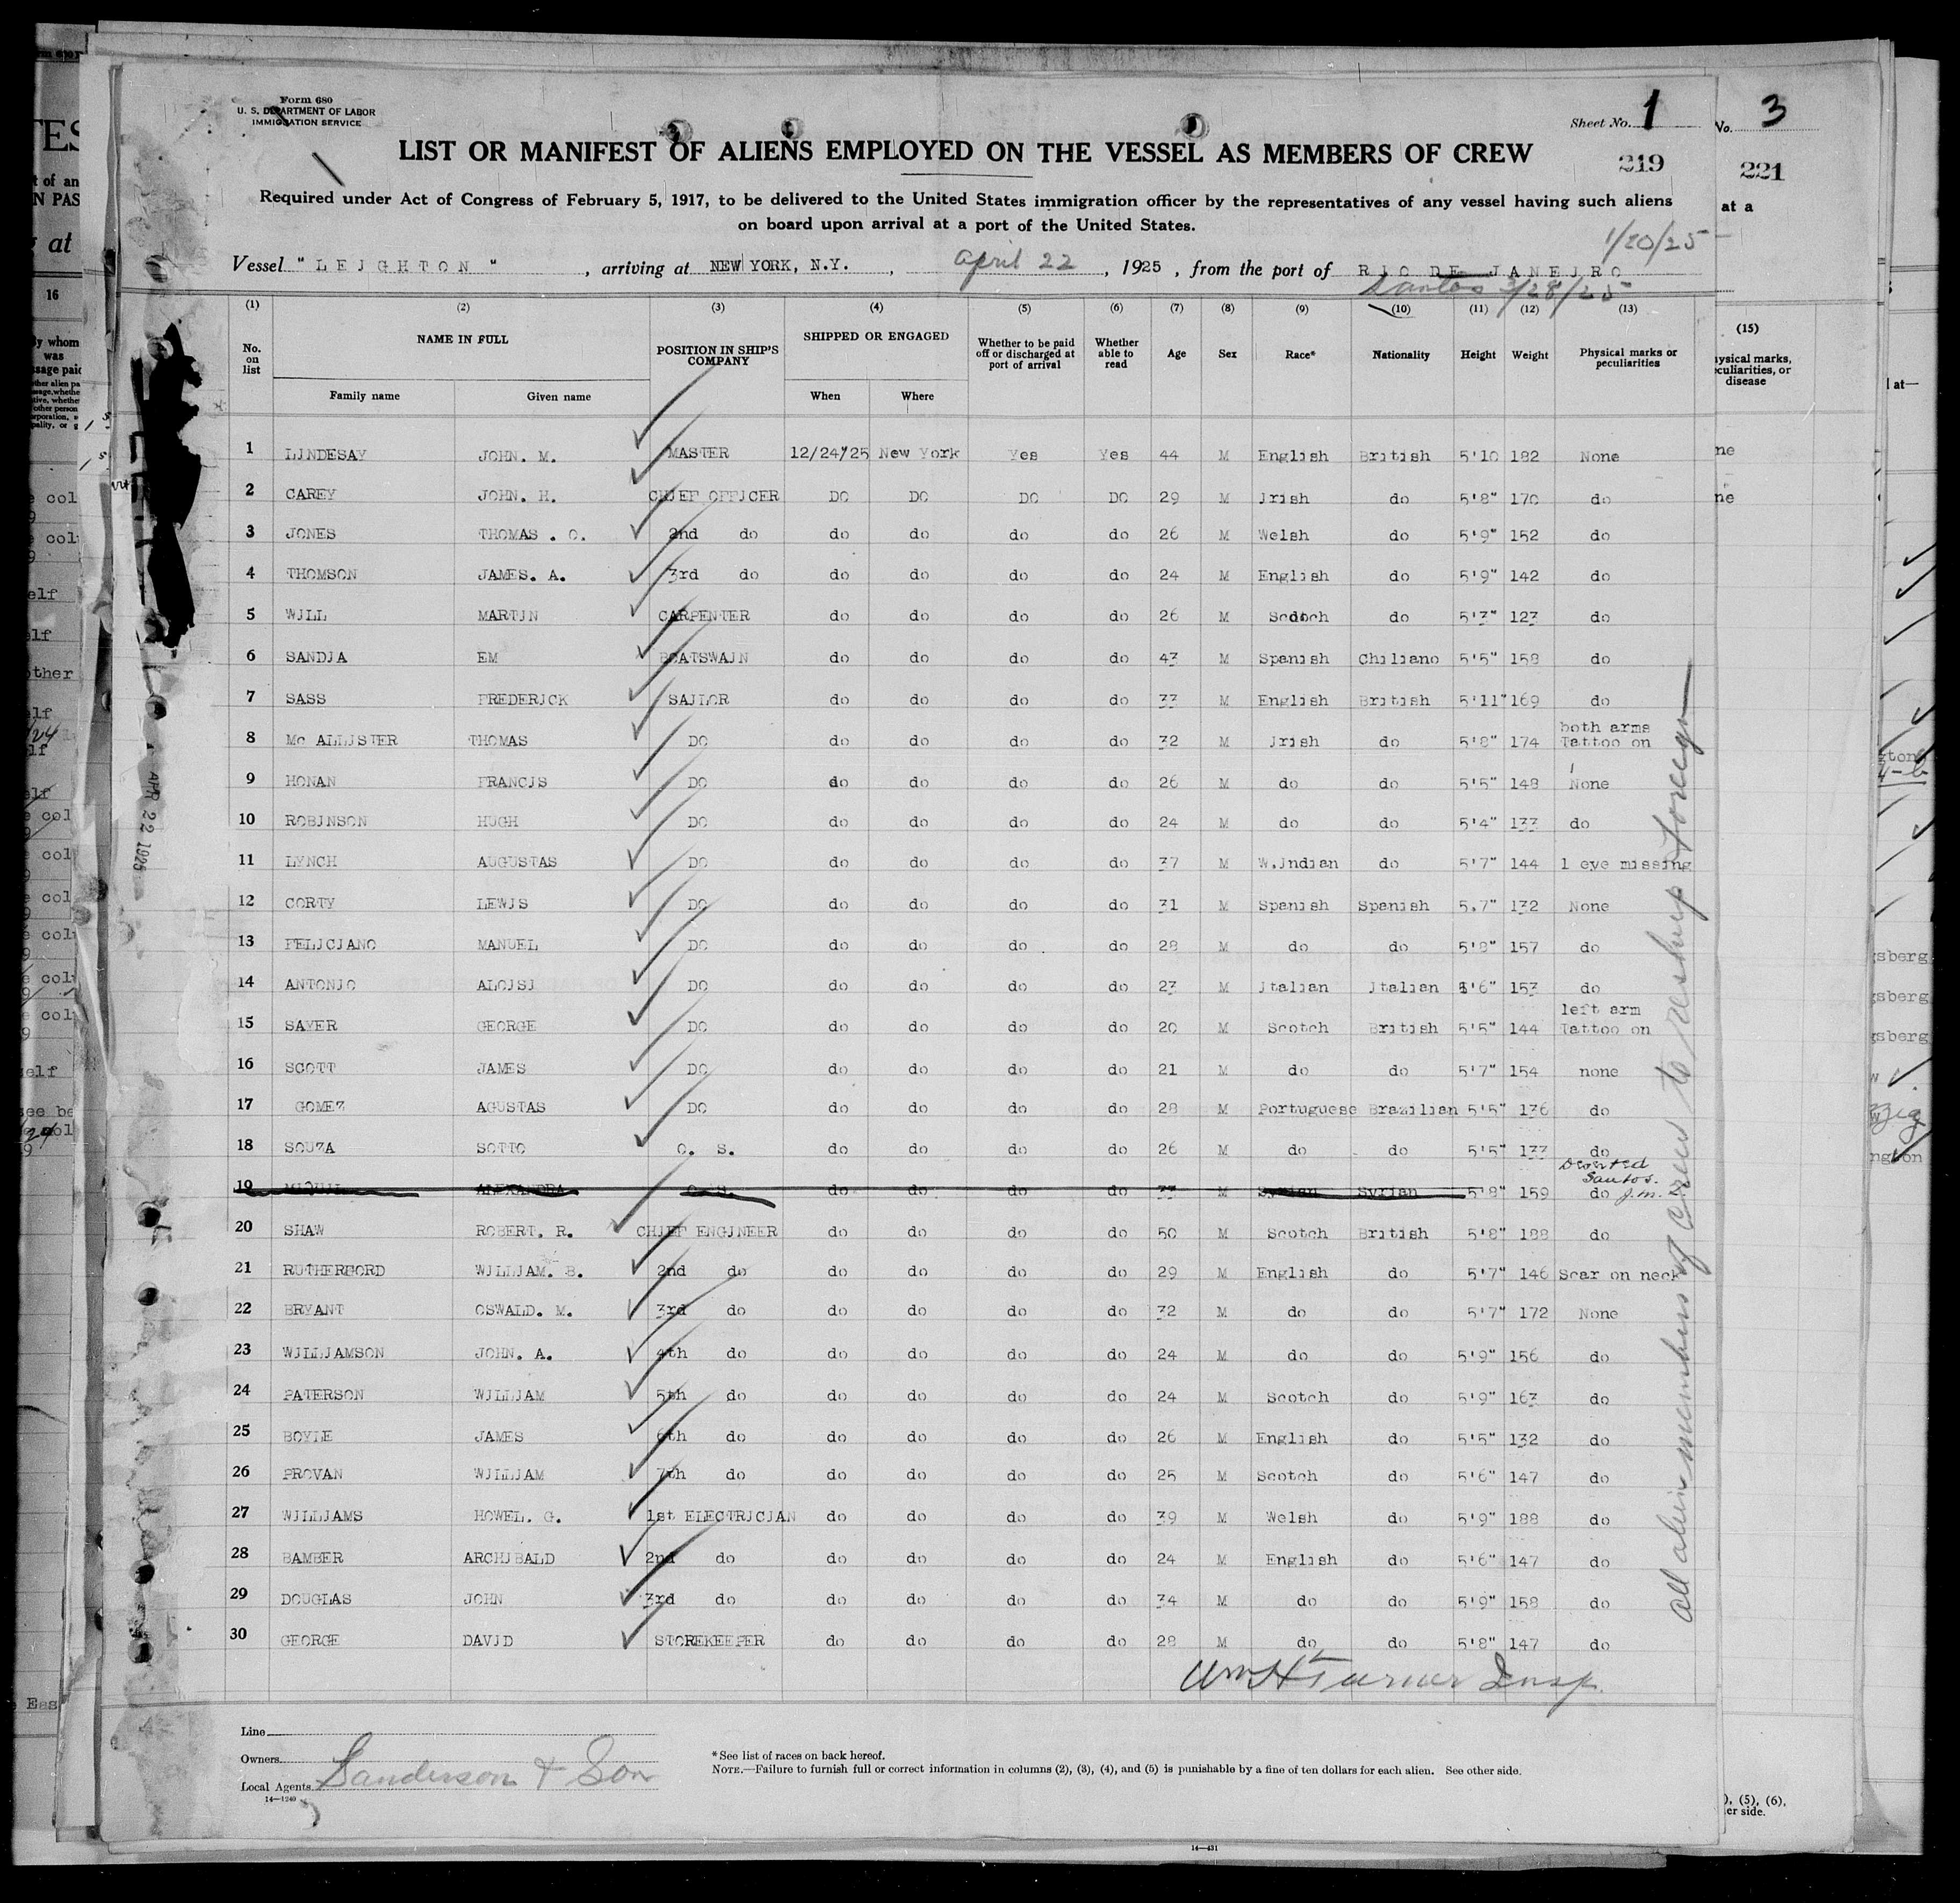 Form 680
U. S. DEPARTMENT OF LABOR
IMMIGRATION SERVICE
Sheet No. 1
219
LIST OR MANIFEST OF ALIENS EMPLOYED ON THE VESSEL AS MEMBERS OF CREW
Required under Act of Congress of February 5, 1917, to be delivered to the United States immigration officer by the representatives of any vessel having such aliens
on board upon arrival at a port of the United States.
1/20/25
Vessel "LEIGHTON", arriving at NEW YORK, N.Y., April 22, 1925, from the port of RIO DE JANEIRO
Santos 3/28/25
(1) (2) (3) (4) (5) (6) (7) (8) (9) (10) (11) (12) (13)
No. on list NAME IN FULL POSITION IN SHIP'S COMPANY SHIPPED OR ENGAGED Whether to be paid off or discharged at port of arrival Whether able to read Age Sex Race* Nationality Height Weight Physical marks or peculiarities
Family name Given name When Where
1 LINDESAY JOHN. M. MASTER 12/24/25 New York Yes Yes 44 M English British 5'10 182 None
2 CAREY JOHN. H. CHIEF OFFICER DO DO DO DO 29 M Irish do 5'8" 170 do
3 JONES THOMAS . O. 2nd do do do do do 26 M Welsh do 5'9" 152 do
4 THOMSON JAMES. A. 3rd do do do do do 24 M English do 5'9" 142 do
5 WILL MARTIN CARPENTER do do do do 26 M Scotch do 5'3" 123 do
6 SANDIA EM BOATSWAIN do do do do 43 M Spanish Chiliano 5'5" 158 do
7 SASS FREDERICK SAILOR do do do do 33 M English British 5'11" 169 do
8 Mc ALLISTER THOMAS DO do do do do 32 M Irish do 5'8" 174 both arms Tattoo on
9 HONAN FRANCIS DO do do do do 26 M do do 5'5" 148 None
10 ROBINSON HUGH DO do do do do 24 M do do 5'4" 133 do
11 LYNCH AUGUSTAS DO do do do do 37 M W.Indian do 5'7" 144 1 eye missing
12 CORTY LEWIS DO do do do do 31 M Spanish Spanish 5.7" 132 None
13 FELICIANO MANUEL DO do do do do 28 M do do 5'8" 157 do
14 ANTONIO ALOISI DO do do do do 23 M Italian Italian 5'6" 153 do
15 SAYER GEORGE DO do do do do 20 M Scotch British 5'5" 144 left arm Tattoo on
16 SCOTT JAMES DO do do do do 21 M do do 5'7" 154 none
17 GOMEZ AGUSTAS DO do do do do 28 M Portuguese Brazilian 5'5" 136 do
18 SOUZA SOTTO O. S. do do do do 26 M do do 5'5" 133 do
Deserted Santos. J.M.
19 ALEXANDRA O. S. do do do do 33 M Syrian Syrian 5'8" 159 do
20 SHAW ROBERT. R. CHIEF ENGINEER do do do do 50 M Scotch British 5'8" 188 do
21 RUTHERFORD WILLIAM. B. 2nd do do do do do 29 M English do 5'7" 146 Scar on neck
22 BRYANT OSWALD. M. 3rd do do do do do 32 M do do 5'7" 172 None
23 WILLIAMSON JOHN. A. 4th do do do do do 24 M do do 5'9" 156 do
24 PATERSON WILLIAM 5th do do do do do 24 M Scotch do 5'9" 163 do
25 BOYLE JAMES 6th do do do do do 26 M English do 5'5" 132 do
26 PROVAN WILLIAM 7th do do do do do 25 M Scotch do 5'6" 147 do
27 WILLIAMS HOWEL. G. 1st ELECTRICIAN do do do do 39 M Welsh do 5'9" 188 do
28 BAMBER ARCHIBALD 2nd do do do do do 24 M English do 5'6" 147 do
29 DOUGLAS JOHN 3rd do do do do do 34 M do do 5'9" 158 do
30 GEORGE DAVID STOREKEEPER do do do do 28 M do do 5'8" 147 do
Wm H Turner Insp.
all alien members of crew to reship foreign
APR 22 1925
Line
Owners
Local Agents Sanderson & Son
14—1240
*See list of races on back hereof.
NOTE.—Failure to furnish full or correct information in columns (2), (3), (4), and (5) is punishable by a fine of ten dollars for each alien. See other side.
14—431
No. 3
221
at a
(15)
disease
(5), (6),
er side.